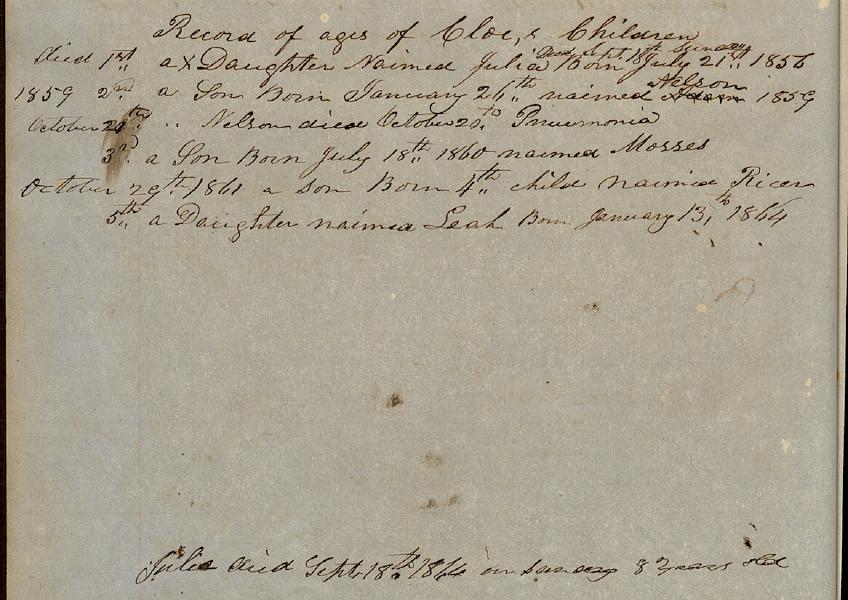 Record of ages of Cloe,s Children
Died Sept. 18th Sunday
died 1st. a X Daughter Naimed Julia Born July 21st. 1856
Nelson
1859 2nd. a Son Born January 24th naimed 1859
October 20th. .. Nelson died October 20th. Pneumonia
3rd. a Son Born July 18th 1860 naimed Mosses
October 29th. 1861 a son Born 4th child naimed Ricer
5th a Daughter naimed Leah Born January 13,th 1864
Julia died Sept 18th 1864 on sunday 8 years old